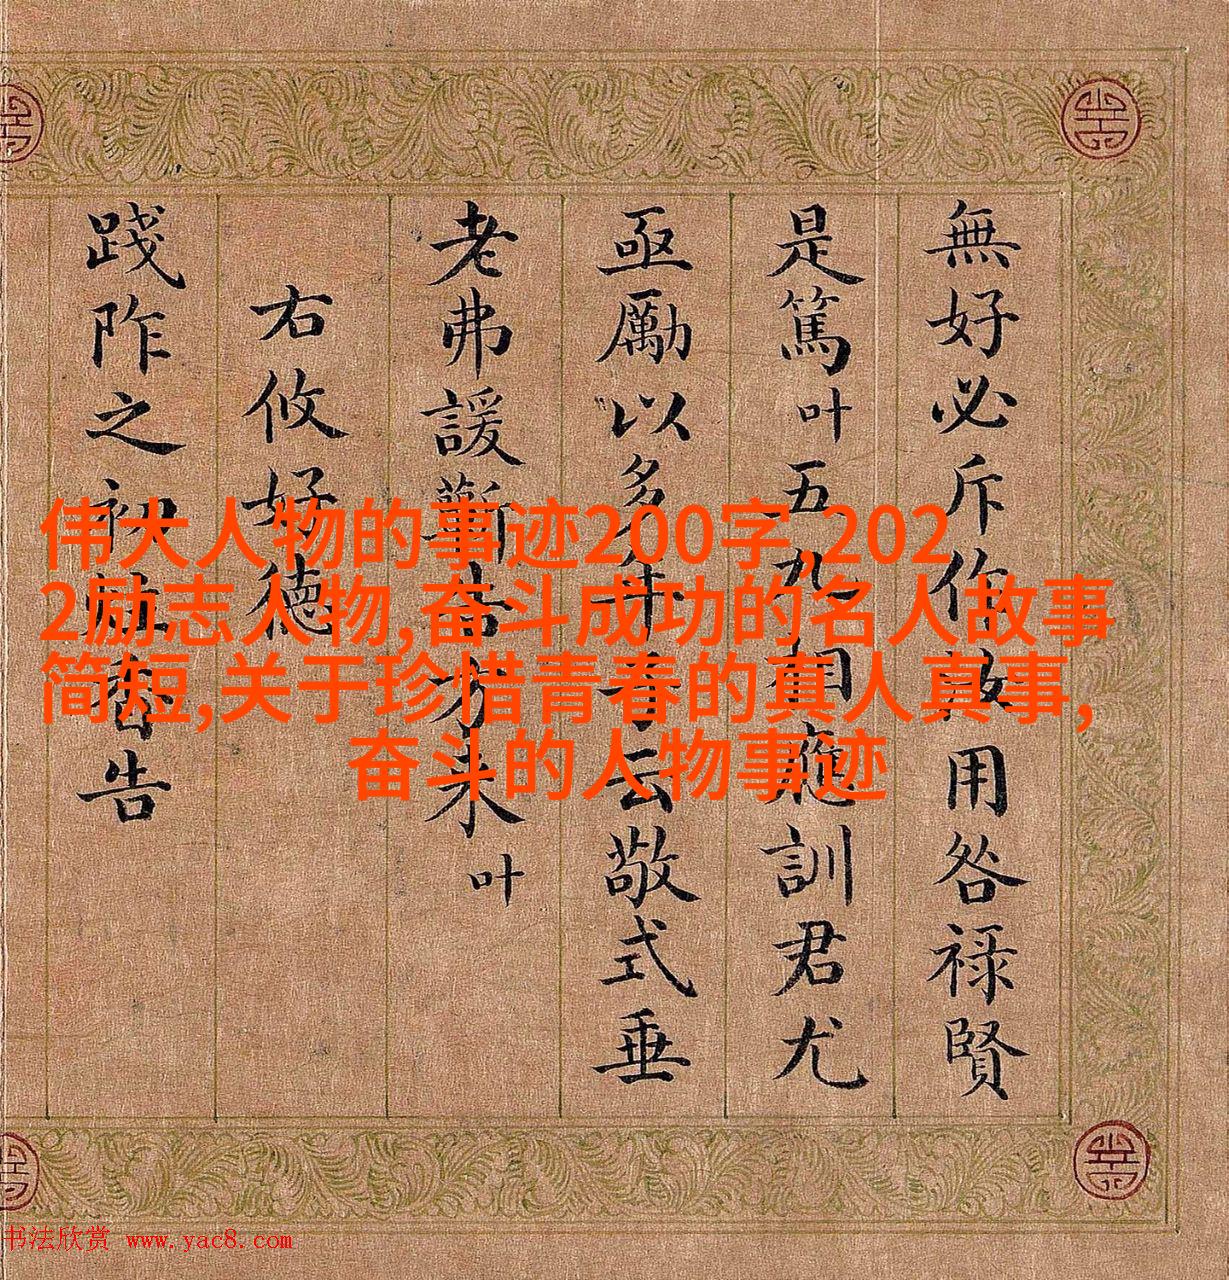 無好必斥作用咎祿賢
是篤叶五九相應訓君尤
亟勵以多年云敬式垂
老弗諼蘄吉方来叶
右攸好德
踐阼之初告
伟大人物的事迹200字,202
2励志人物,奋斗成功的名人故事
简短,关于珍惜青春的真人真事,
奋斗的人物事迹
书法欣赏 www.yac8.com